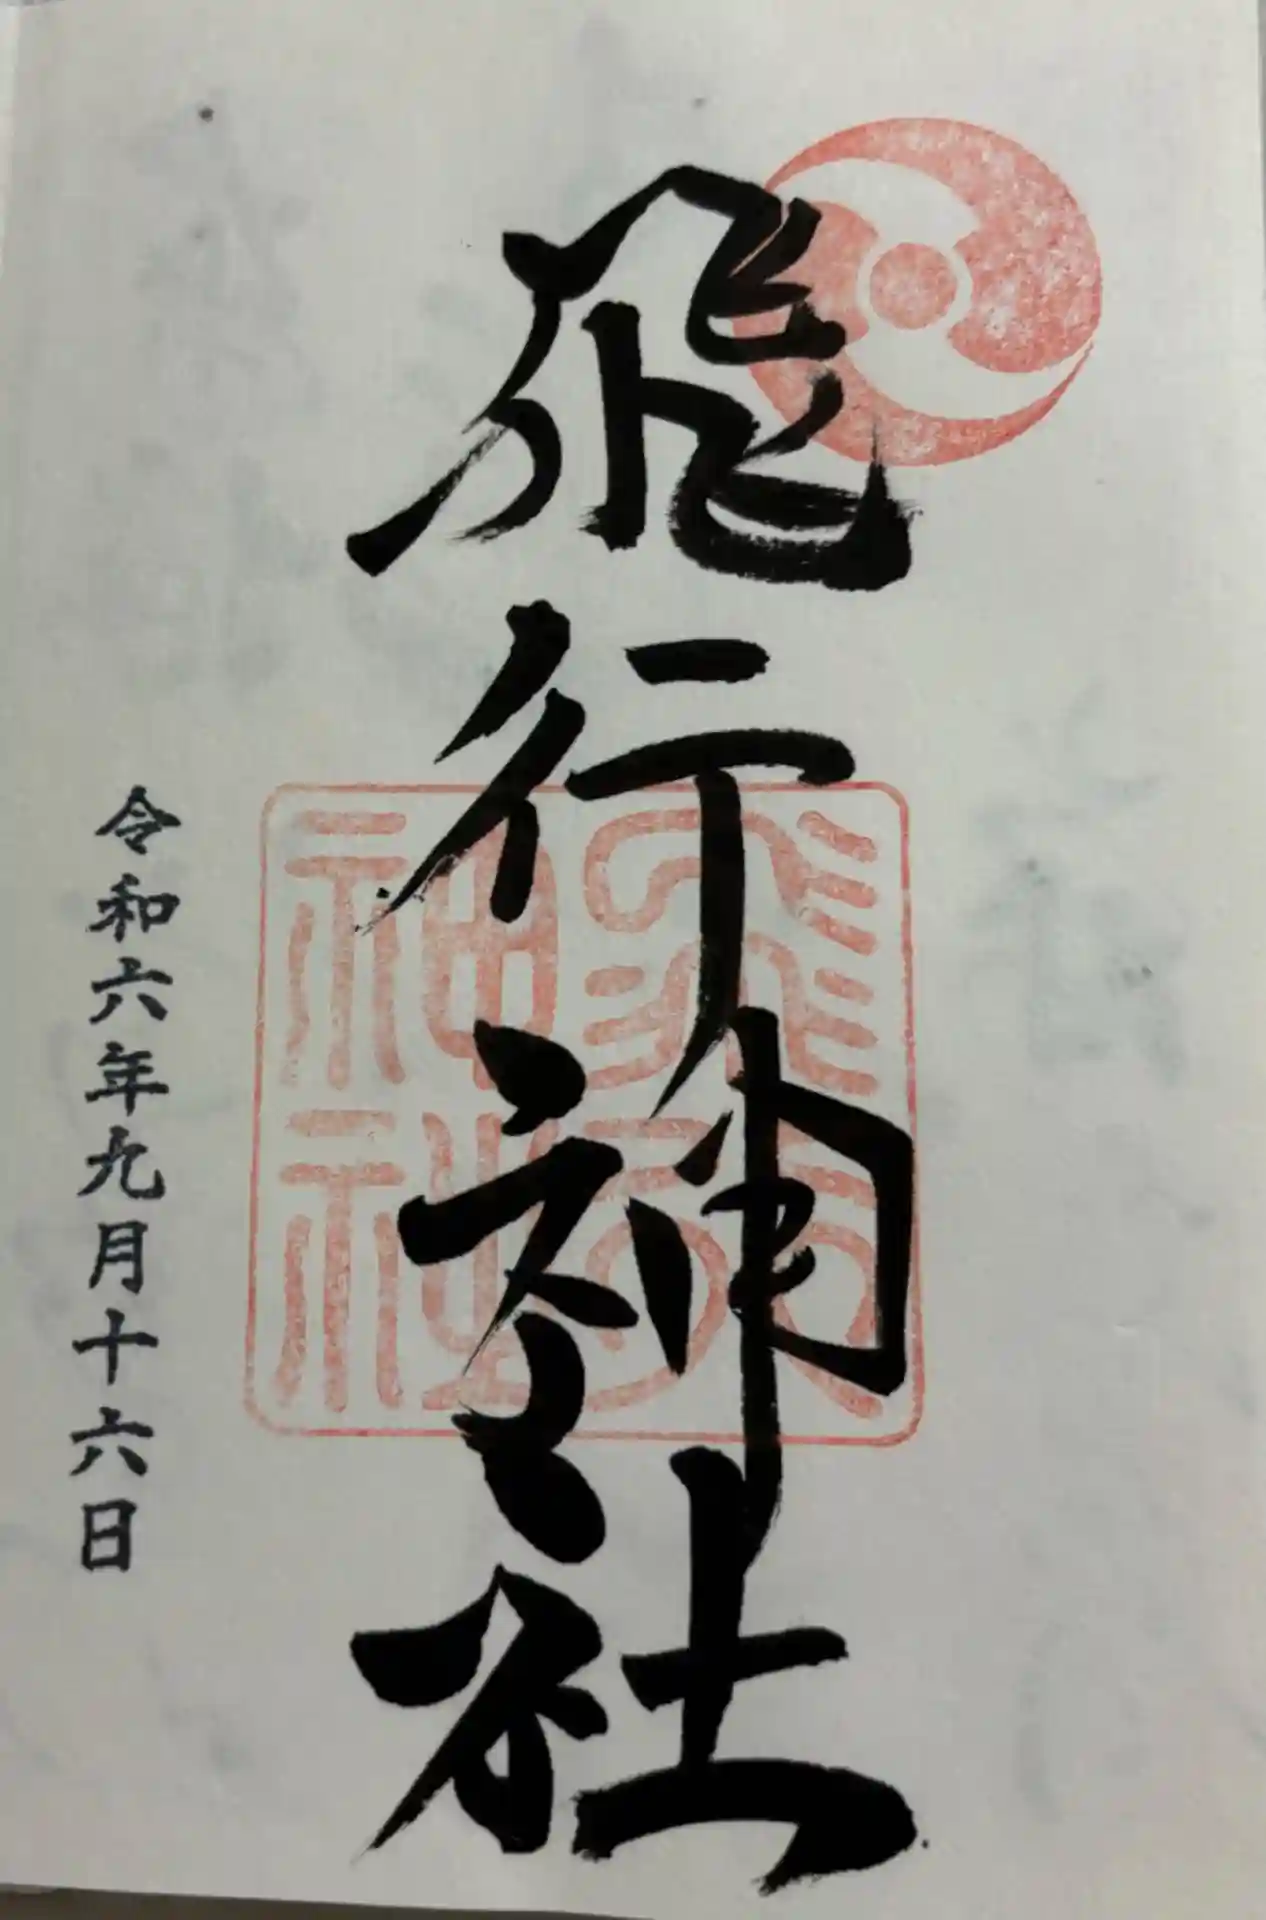 飛行神社
令和六年九月十六日
飛行
神社